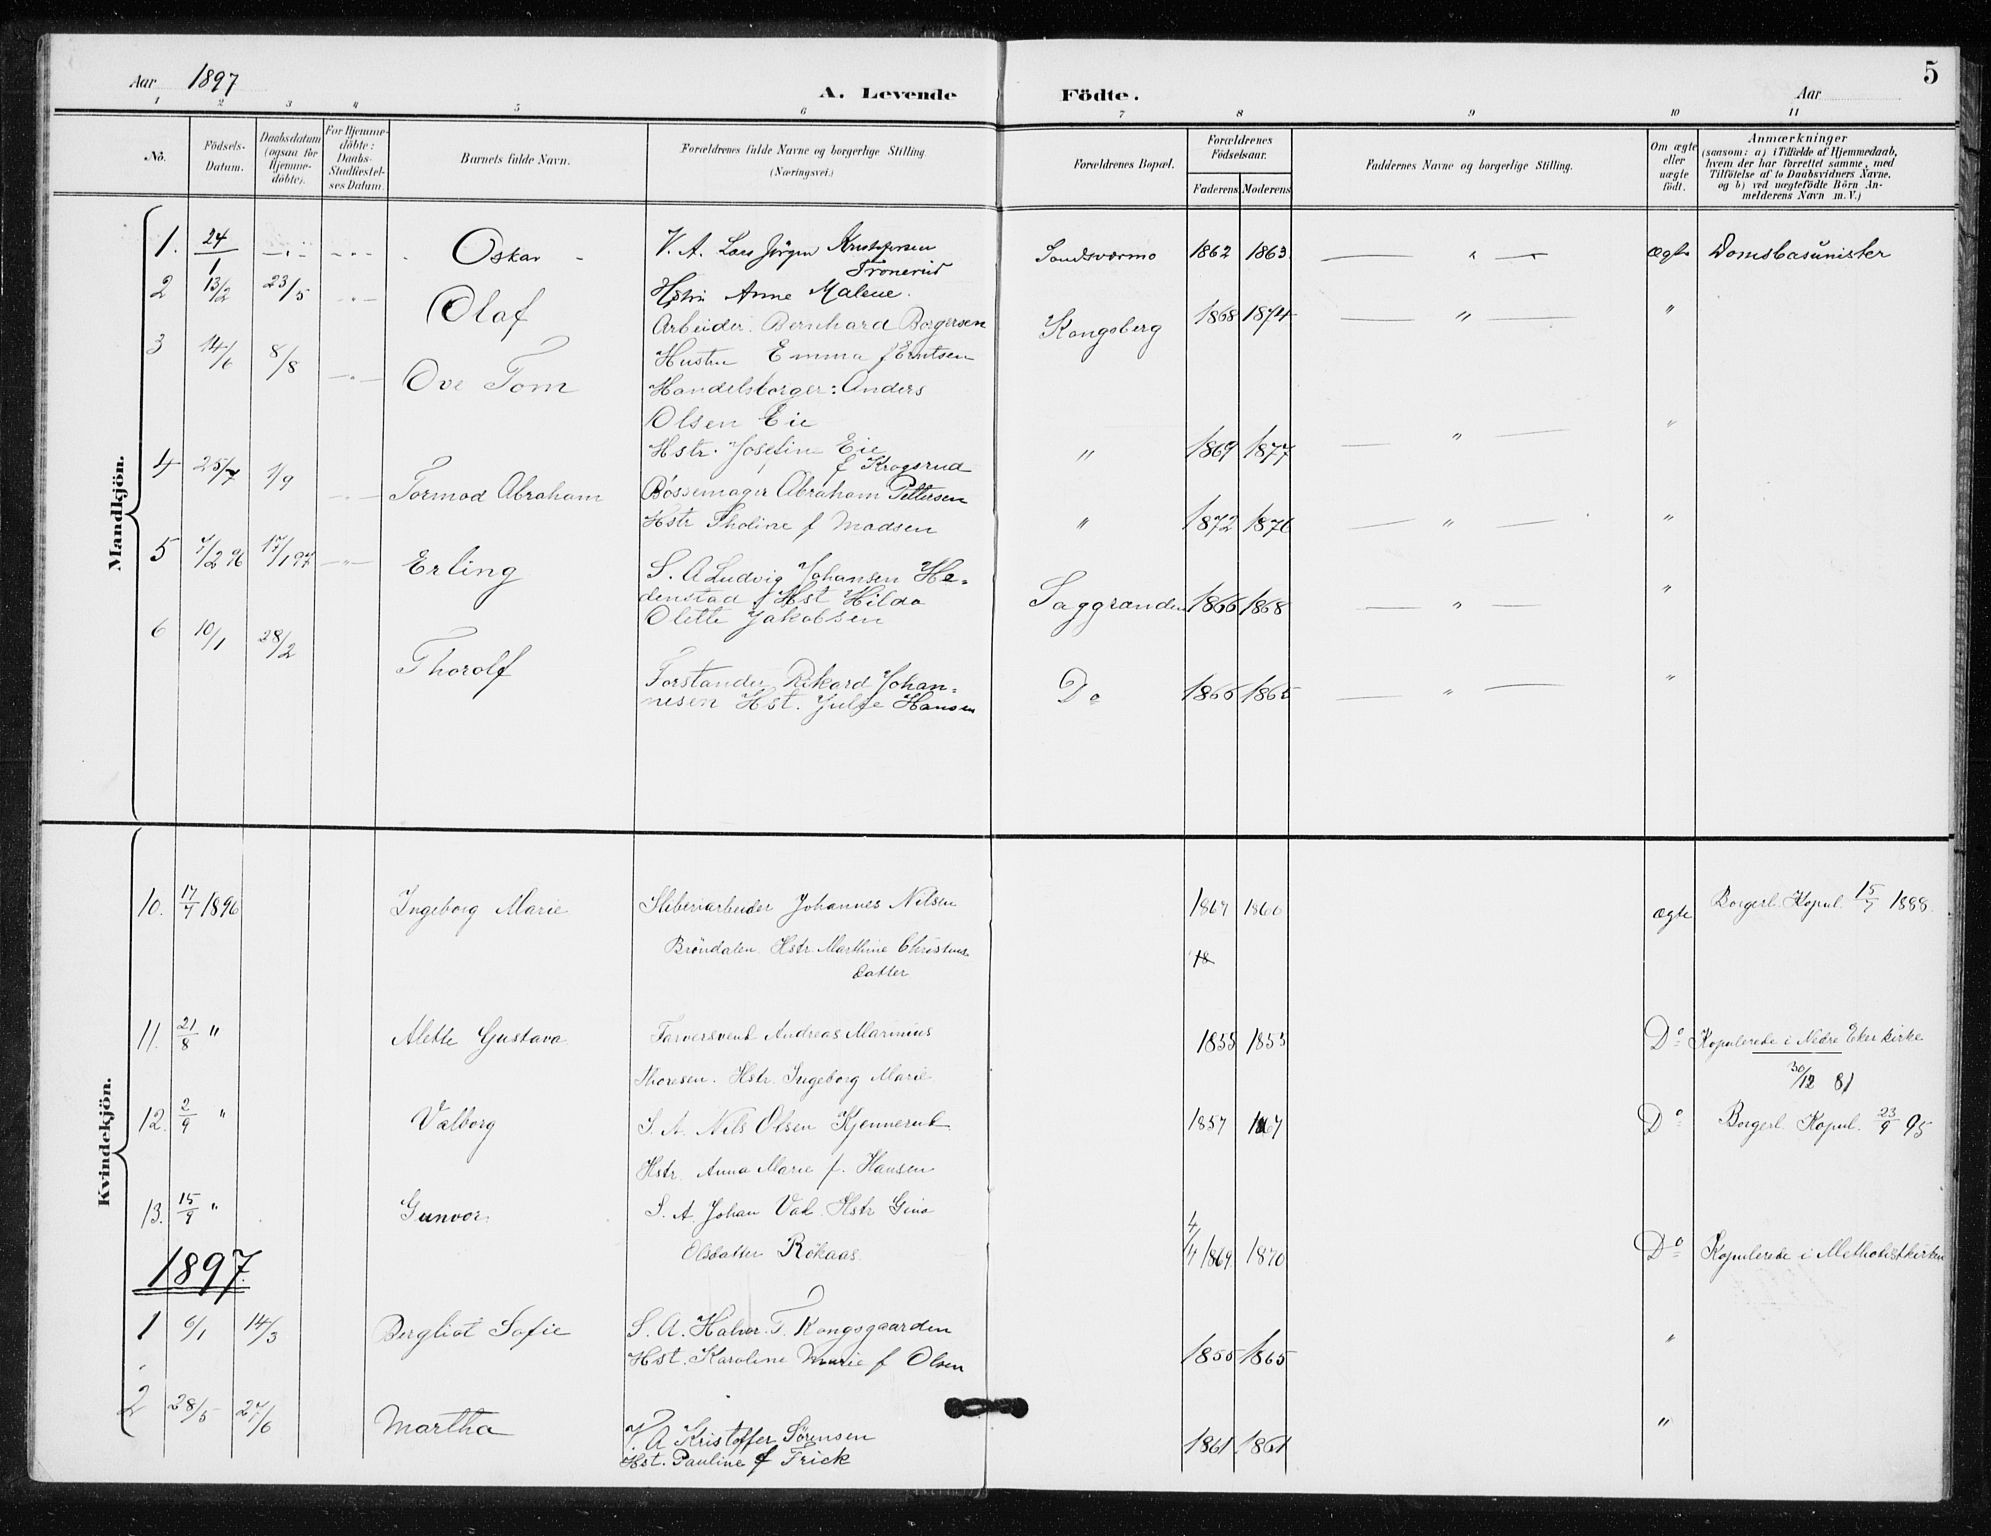 Aar 1897
A. Levende
Födte.
Aar
5
1 2 3 4 5 6 7 8 9 10 11
No.
Födsels-
Datum.
Daabsdatum
(ogsaa for
Hjemme-
döbte).
For Hjemme-
döbte:
Daabs-
Stadfæstel-
ses Datum.
Barnets fulde Navn.
Forældrenes fulde Navne og borgerlige Stilling
(Næringsvei.)
Forældrenes Bopæl.
Forældrenes
Födselsaar.
Faderens Moderens
Faddernes Navne og borgerlig Stilling.
Om ægte
eller
uægte
födt.
Anmærkninger
(saasom: a) i Tilfælde af Hjemmedaab,
hvem der har forrettet samme, med
Tilföielse af to Daabsvidners Navne,
og b) ved uægtefödte Börn An-
melderens Navn m. V.)
Mandkjön.
1. 24/1 Oskar V. A. Lars Jörgen Kristofersen Sandsværmo 1862 1863 ægte
Tronerud
2 13/2 23/5 Olaf Hstr. Anne Malene.
Arbeider. Bernhard Borgersen Kongsberg 1868 1874 "
3 14/6 8/8 Ove Tom Hustru Emma f Erntsen
Handelsborger: Anders
Olsen Eie
Hstr. Josefine Eie " 1869 1877 "
f Krogsrud
4 25/7 1/9 Tormod Abraham Bössemager Abraham Pettersen
Hstr Tholine f Madsen " 1872 1876 "
5 7/2 96 17/1 97 Erling S. A Ludvig Johansen He-
denstad Hst Hilda Saggranden 1866 1868 "
Olette Jakobsen
6 10/1 28/2 Thorolf
Forstander Rikard Johan-
nesen Hst. Hansen Do 1866 1865 "
Kvindekjön.
10. 17/7 1896 Ingeborg Marie Johannes Nilsen 1867 1860 ægte Borgerl. Kopul. 15/7 1888.
Bröndalen. Hstr. Marthine Christens
datter 18
11. 21/8 " Alette Gustava Farversvend Andreas Marinius 1855 1853 Do Kopulerede i Nedre Eker kirke
Thoresen. Hstr. Ingeborg Marie 30/12 81
12. 2/9 " Valborg S. A. Nils Olsen Kjennerud 1857 1867 Do Borgerl. Kopul. 23/9 95
Hstr. Anna Marie f. Hansen
13. 15/9 " Gunvor S. A. Johan Hstr Gina
Olsdatter Rökaas 4/4 1869. 1870 Do Kopulerede i Methodistkirken
1897
1 6/1 14/3 Bergliot Sofie S. A. Halvor. T. Kongsgaarden "
Hst. Karoline Marie f Olsen 1855 1865
2 28/5 27/6 Martha V. A Kristoffer Sörensen 1861. 1861 "
Hst. Pauline f Frick